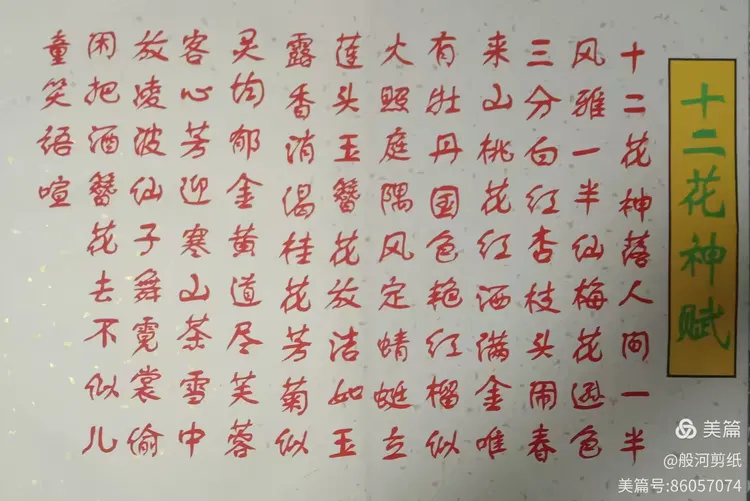 十二花神赋
十二花神落人间一半
风雅一半仙梅花逊色
三分白红杏枝头闹春
来山桃花红洒满金唯
有牡丹国色艳红榴似
火照庭隅风定蜻蜓立
莲头玉簪花放洁如玉
露香消偈桂花芳菊似
灵均郁金黄道尽芙蓉
客心芳迎寒山茶雪中
放凌波仙子舞霓裳偷
闲把酒簪花去不似儿
童笑语喧
美篇
@般河剪纸
美篇号:86057074